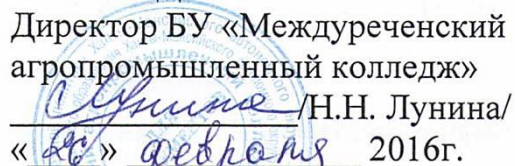 Директор БУ «Междуреченский
агропромышленный колледж»
Лунина /Н.Н. Лунина/
« 26 » февраля 2016г.